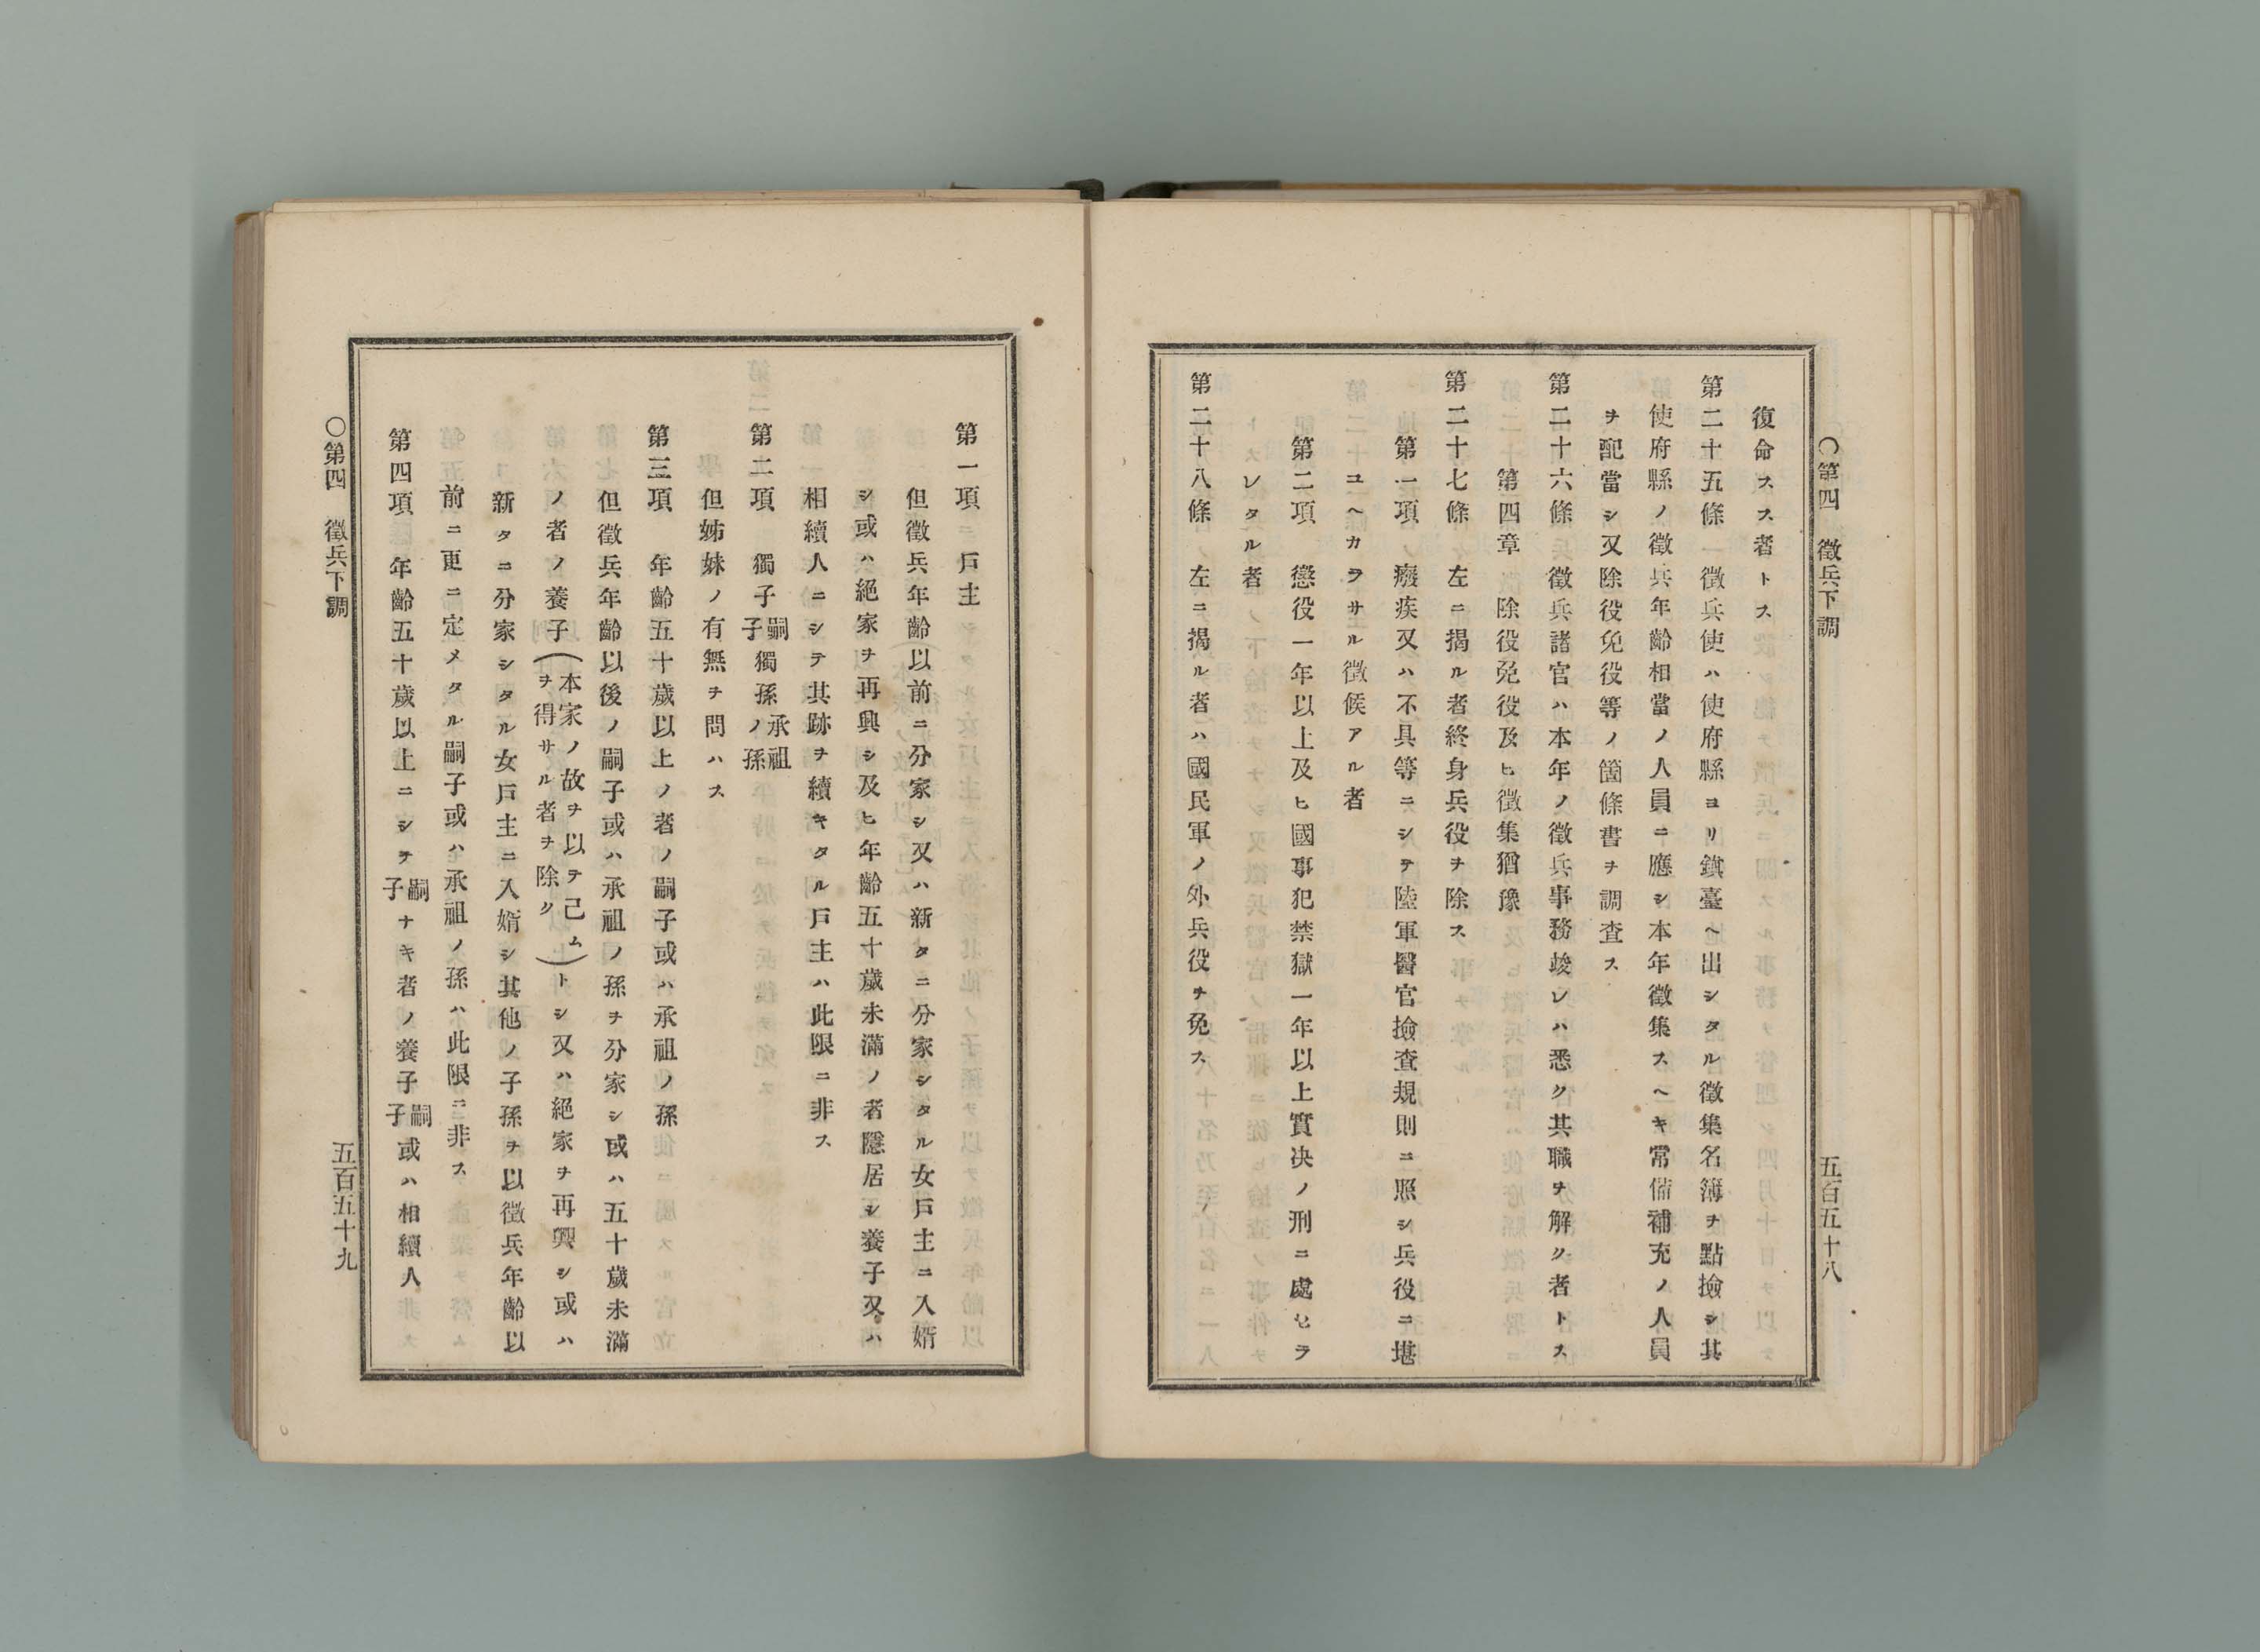 〇第四　徵兵下調
五百五十八
復命スヘス者トス
第二十五條　徵兵使ハ使府縣ヨリ鎭臺ヘ出シタル徵集名簿ヲ點撿シ其
使府縣ノ徵兵年齡相當ノ人員ニ應シ本年徵集スヘキ常備補充ノ人員
ヲ配當シ又除役免役等ノ箇條書ヲ調査ス
第二十六條　徵兵諸官ハ本年ノ徵兵事務竣レハ悉ク其職ヲ解ク者トス
第四章　除役免役及ヒ徵集猶豫
第二十七條　左ニ揭ル者終身兵役ヲ除ス
第一項　癈疾又ハ不具等ニシテ陸軍醫官撿査規則ニ照シ兵役ニ堪
ユヘカラサル徵候アル者
第二項　懲役一年以上及ヒ國事犯禁獄一年以上實決ノ刑ニ處セラ
レタル者
第二十八條　左ニ揭ル者ハ國民軍ノ外兵役ヲ免ス
第一項　戶主
但徵兵年齡以前ニ分家シ又ハ新タニ分家シタル女戶主ニ入婿
シ或ハ絕家ヲ再興シ及ヒ年齡五十歲未滿ノ者隱居シ養子又ハ
相續人ニシテ其跡ヲ續キタル戶主ハ此限ニ非ス
第二項　獨子嗣子獨孫承祖ノ孫
但姊妹ノ有無ヲ問ハス
第三項　年齡五十歲以上ノ者ノ嗣子或ハ承祖ノ孫
但徵兵年齡以後ノ嗣子或ハ承祖ノ孫ヲ分家シ或ハ五十歲未滿
ノ者ノ養子（本家ノ故ヲ以テ已ムヲ得サル者ヲ除ク）トシ又ハ絕家ヲ再興シ或ハ
新タニ分家シタル女戶主ニ入婿シ其他ノ子孫ヲ以徵兵年齡以
前ニ更ニ定メタル嗣子或ハ承祖ノ孫ハ此限ニ非ス
第四項　年齡五十歲以上ニシテ嗣子ナキ者ノ養子嗣子或ハ相續人
〇第四　徵兵下調
五百五十九